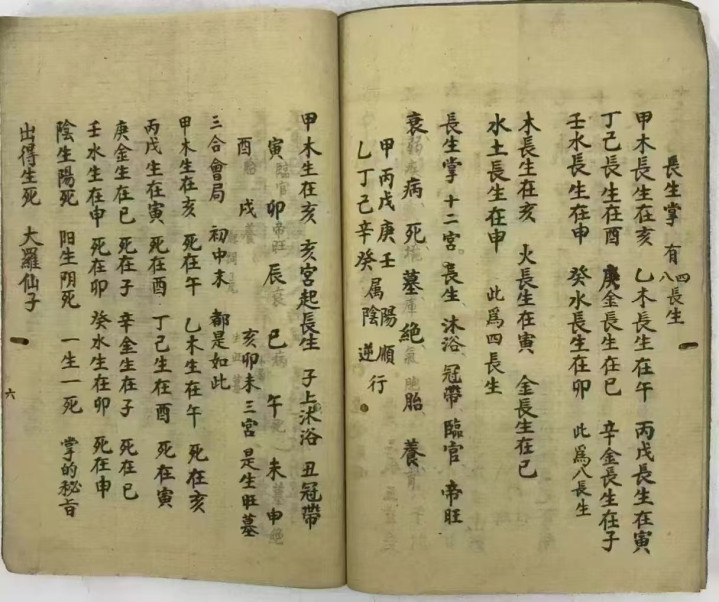 長生掌 有四八長生
甲木長生在亥 乙木長生在午 丙戊長生在寅
丁己長生在酉 庚金長生在巳 辛金長生在子
壬水長生在申 癸水長生在卯 此爲八長生
木長生在亥 火長生在寅 金長生在巳
水土長生在申 此爲四長生
長生掌 十二宮 長生 沐浴 冠帶 臨官 帝旺
衰 病 死 墓 絕 胎 養
甲丙戊庚壬 属陽順行
乙丁己辛癸 属陰逆行
甲木生在亥 亥宮起長生 子上沐浴 丑冠帶
寅臨官 卯帝旺 辰衰 巳病 午死 未墓 申絕
酉胎 戌養 亥卯未三宮 是生旺墓
三合會局 初中末 都是如此
甲木生在亥 死在午 乙木生在午 死在亥
丙戊生在寅 死在酉 丁己生在酉 死在寅
庚金生在巳 死在子 辛金生在子 死在巳
壬水生在申 死在卯 癸水生在卯 死在申
陰生陽死 阳生阴死 一生一死 掌的秘旨
出得生死 大羅仙子
六